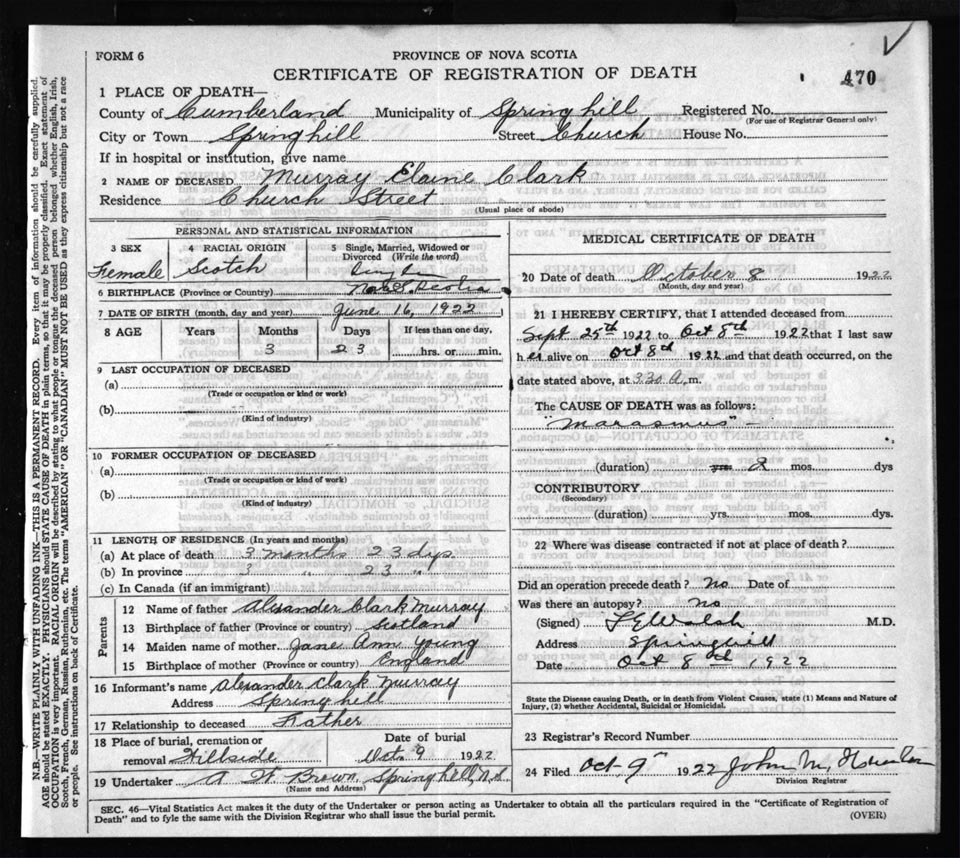 FORM 6
PROVINCE OF NOVA SCOTIA
CERTIFICATE OF REGISTRATION OF DEATH
470
1 PLACE OF DEATH—
County of Cumberland Municipality of Springhill Registered No.
(For use of Registrar General only)
City or Town Springhill Street Church House No.
If in hospital or institution, give name
2 NAME OF DECEASED Murray Elaine Clark
Residence Church Street
(Usual place of abode)
PERSONAL AND STATISTICAL INFORMATION
3 SEX 4 RACIAL ORIGIN 5 Single, Married, Widowed or Divorced (Write the word)
Female Scotch Single
6 BIRTHPLACE (Province or Country) Nova Scotia
7 DATE OF BIRTH (month, day and year) June 16, 1922
8 AGE Years Months Days If less than one day,
3 23 hrs. or min.
9 LAST OCCUPATION OF DECEASED
(a)
(Trade or occupation or kind or work)
(b)
(Kind of industry)
10 FORMER OCCUPATION OF DECEASED
(a)
(Trade or occupation or kind of work)
(b)
(Kind of industry)
11 LENGTH OF RESIDENCE (In years and months)
(a) At place of death 3 months 23 dys.
(b) In province 3 " 23 "
(c) In Canada (if an immigrant)
Parents
12 Name of father Alexander Clark Murray
13 Birthplace of father (Province or country) Scotland
14 Maiden name of mother Jane Ann Young
15 Birthplace of mother (Province or country) England
16 Informant's name Alexander Clark Murray
Address Springhill
17 Relationship to deceased Father
18 Place of burial, cremation or removal Hillside Date of burial Oct. 9 1922
19 Undertaker A W Brown, Springhill, N.S.
(Name and Address)
MEDICAL CERTIFICATE OF DEATH
20 Date of death October 8 1922
(Month, day and year)
21 I HEREBY CERTIFY, that I attended deceased from
Sept 25th 1922 to Oct 8th 1922 that I last saw
h er alive on Oct 8th 1922 and that death occurred, on the
date stated above, at 3.30 a. m.
The CAUSE OF DEATH was as follows:
"Marasmus" -
(duration) yrs 2 mos. dys
CONTRIBUTORY
(Secondary)
(duration) yrs. mos. dys.
22 Where was disease contracted if not at place of death?
Did an operation precede death? No Date of
Was there an autopsy? No
(Signed) M.D.
Address Springhill
Date Oct 8th 1922
State the Disease causing Death, or in death from Violent Causes, state (1) Means and Nature of
Injury, (2) whether Accidental, Suicidal or Homicidal.
23 Registrar's Record Number
24 Filed Oct 9th 1922 John M.
Division Registrar
SEC. 46—Vital Statistics Act makes it the duty of the Undertaker or person acting as Undertaker to obtain all the particulars required in the "Certificate of Registration of
Death" and to fyle the same with the Division Registrar who shall issue the burial permit.
(OVER)
N.B.—WRITE PLAINLY WITH UNFADING INK—THIS IS A PERMANENT RECORD. Every item of information should be carefully supplied.
AGE should be stated EXACTLY. PHYSICIANS should STATE CAUSE OF DEATH in plain terms, so that it may be properly classified. Exact statement of
OCCUPATION is very important. RACIAL ORIGIN will be described by stating to what people or tongue the deceased person belonged whether English, Irish,
Scotch, French, German, Russian, Ruthenian, etc. The terms "AMERICAN" OR "CANADIAN" MUST NOT BE USED as they express citizenship but not a race
or people. See instructions on back of Certificate.